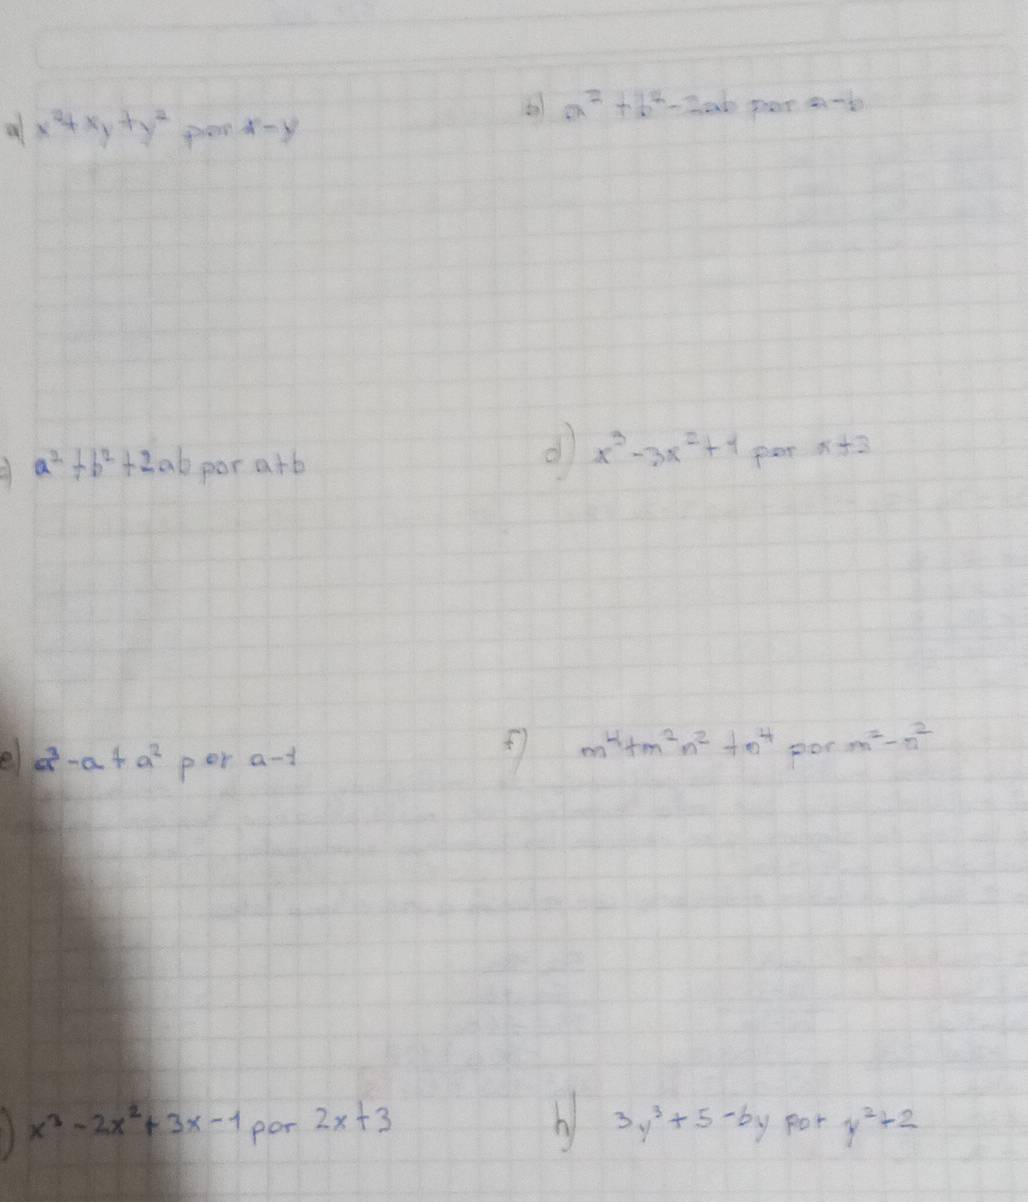 a) x²+xy+y² por x-y
b) a²+b²-2ab por a-b
a²+b²+2ab por a+b
d) x³-3x²+1 por x+3
e) a³-a+a² por a-1
f) m⁴+m²n²+n⁴ por m²-n²
) x³-2x²+3x-1 por 2x+3
h) 3y³+5-6y por y²+2